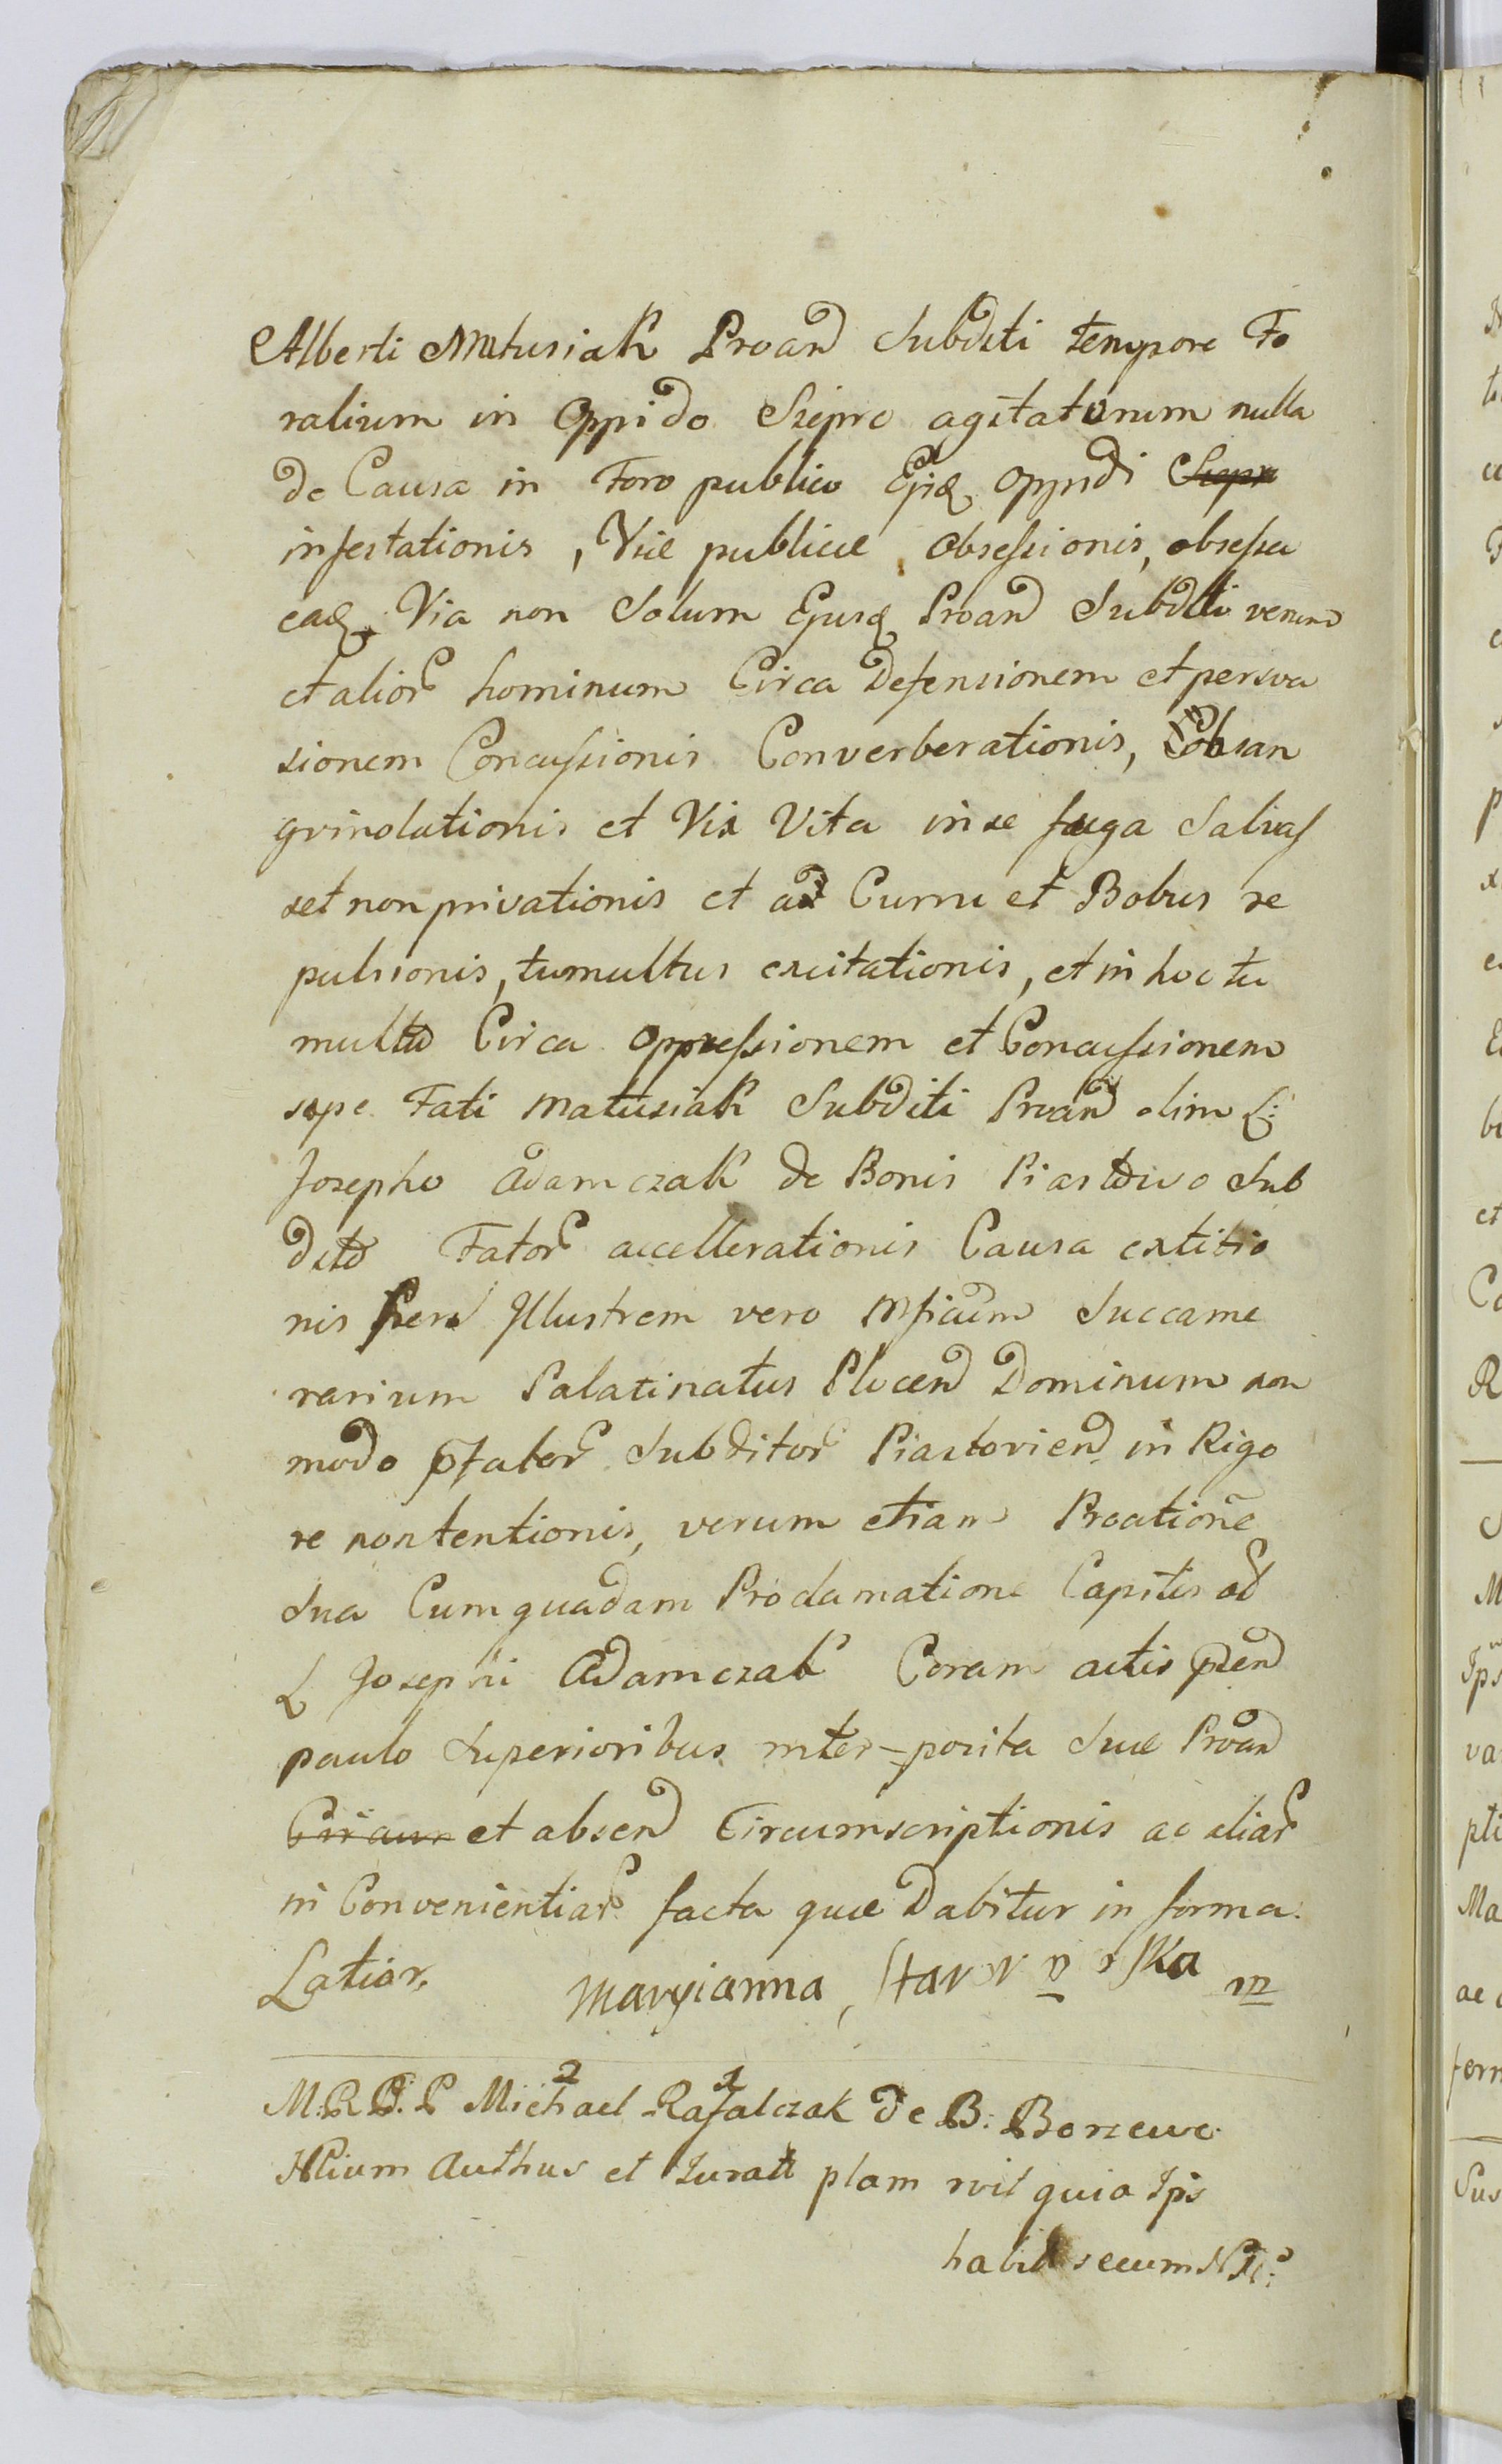 Alberti Matusiak Proand Subditi tempore Fo
ralium in Oppido Sierpc agitatorum nulla
de Causa in Foro publico Ejusq Oppidi Sierpc
infestationis, Viæ publicæ obsessionis, obsessa
eaq Via non Solum Ejusq Proand Subditi verum
et alior hominum Circa Defensionem et persva
sionem Concussionis Converberationis, Cobsan
gvinolationis et Vix Vita in se fuga Salvas
set non privationis et ad Curru et Bobus re
pulsionis, tumultus excitationis, et in hoc tu
multu Circa oppressionem et Concussionem
sepe Fati Matusiak Subditi Proand olim L:
Josepho Adamczak de Bonis Piastowo Sub
dito Fator accellerationis Causa extitio
nis per Illustrem vero Mficum Succame
rarium Palatinatus Plocend Dominum non
modo pfator Subditor Piastoviend in Rigo
re non tentionis, verum etiam Proatione
Sua Cum quadam Proclamatione Capitis od
L Josephi Adamczak Coram actis pzend
paulo Superioribus inter-posita Suæ Proand
Circum et absend Circumscriptionis ac aliar
in Convenientiar facta quæ Dabitur in forma.
Latior.
Maryianna m
M.R.D.P Michael Rafalczak de B:
Authus et Jurati plam quia Ips
secum